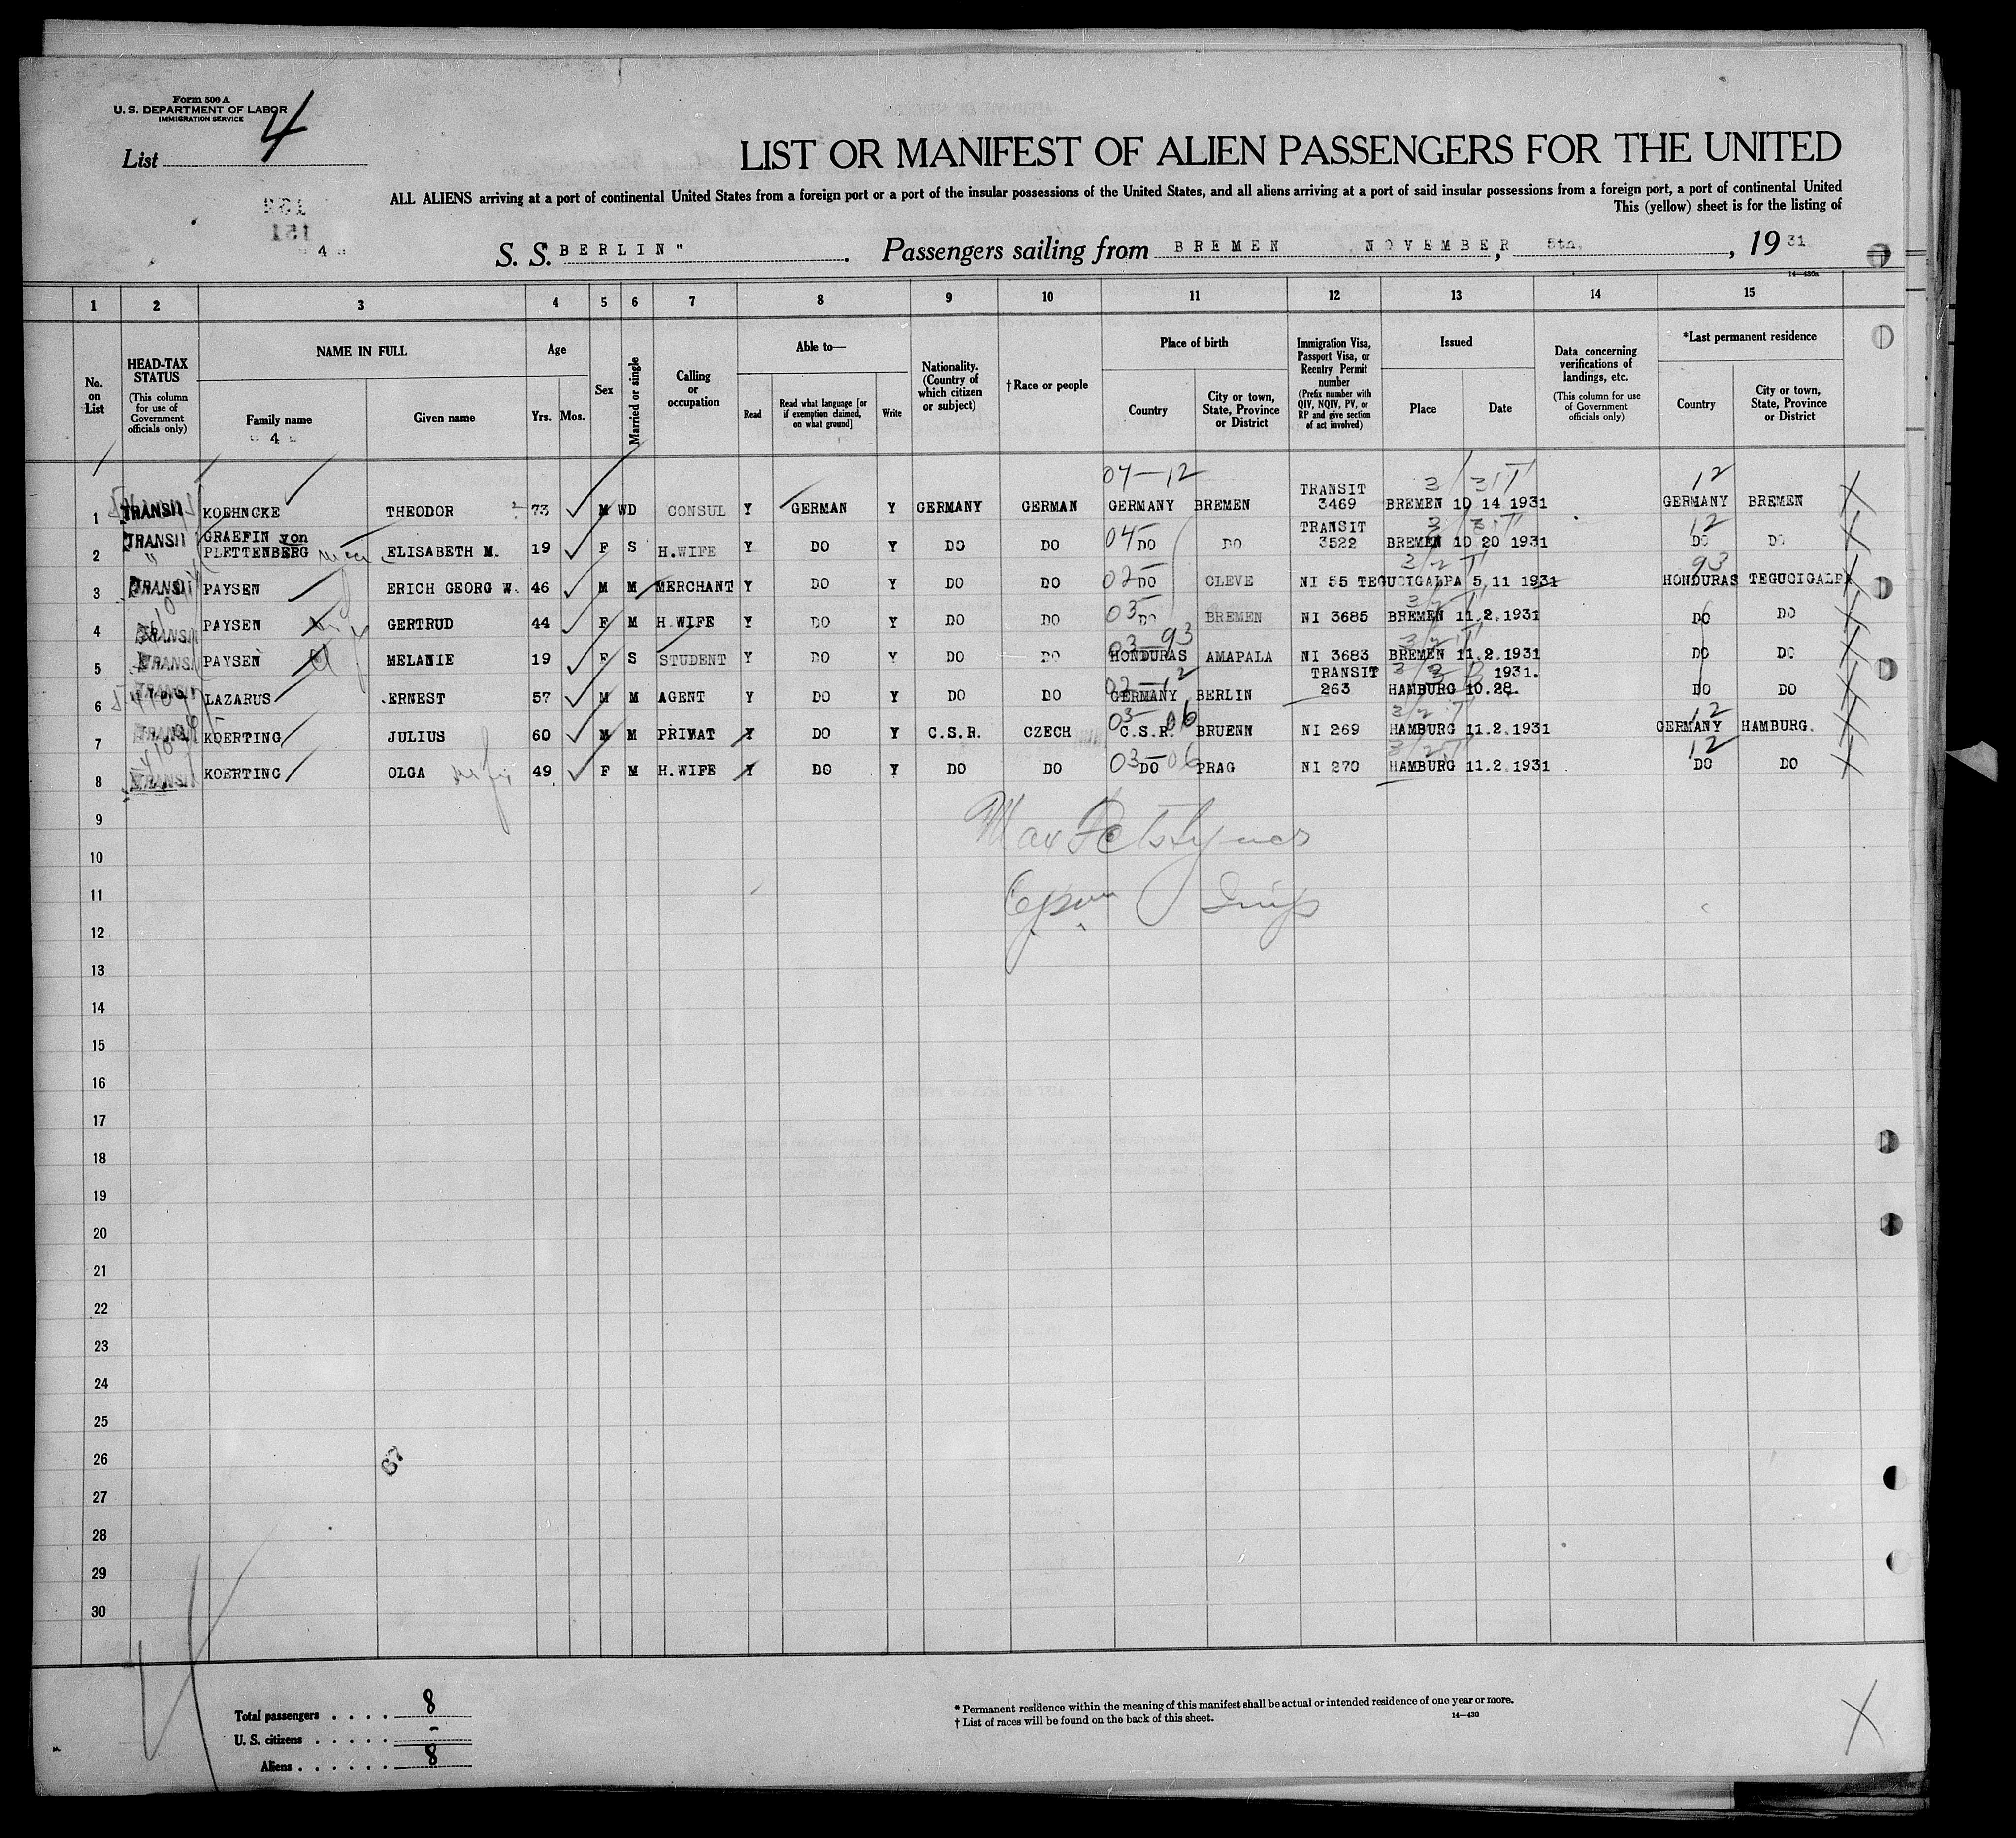 Form 500 A
U. S. DEPARTMENT OF LABOR
IMMIGRATION SERVICE
List 4
LIST OR MANIFEST OF ALIEN PASSENGERS FOR THE UNITED
ALL ALIENS arriving at a port of continental United States from a foreign port or a port of the insular possessions of the United States, and all aliens arriving at a port of said insular possessions from a foreign port, a port of continental United
This (yellow) sheet is for the listing of
151
" 4 "
S. S. BERLIN" . Passengers sailing from BREMEN , NOVEMBER 5th, , 19 31
14—430a
1 2 3 4 5 6 7 8 9 10 11 12 13 14 15
No. on List
HEAD-TAX STATUS (This column for use of Government officials only)
NAME IN FULL
Family name
" 4 "
Given name
Age
Yrs. Mos.
Sex
Married or single
Calling or occupation
Able to—
Read
Read what language [or if exemption claimed, on what ground]
Write
Nationality. (Country of which citizen or subject)
†Race or people
Place of birth
Country
City or town, State, Province or District
Immigration Visa, Passport Visa, or Reentry Permit number (Prefix number with QIV, NQIV, PV, or RP and give section of act involved)
Issued
Place
Date
Data concerning verifications of landings, etc. (This column for use of Government officials only)
*Last permanent residence
Country
City or town, State, Province or District
04—12 3/31T 12
1 TRANSIT KOEHNCKE THEODOR 73 M WD CONSUL Y GERMAN Y GERMANY GERMAN GERMANY BREMEN TRANSIT 3469 BREMEN 10 14 1931 GERMANY BREMEN
2 TRANSIT GRAEFIN von PLETTENBERG ELISABETH M. 19 F S H.WIFE Y DO Y DO DO 04 DO DO TRANSIT 3522 BREMEN 10 20 1931 12 DO DO
3 TRANSIT PAYSEN ERICH GEORG W. 46 M M MERCHANT Y DO Y DO DO 02 DO CLEVE NI 55 TEGUCIGALPA 5,11 1931 93 HONDURAS TEGUCIGALPA
4 TRANSIT PAYSEN GERTRUD 44 F M H.WIFE Y DO Y DO DO 03 DO BREMEN NI 3685 BREMEN 11.2.1931 DO DO
5 TRANSIT PAYSEN MELANIE 19 F S STUDENT Y DO Y DO DO 03—93 HONDURAS AMAPALA NI 3683 BREMEN 11.2.1931 DO DO
6 TRANSIT LAZARUS ERNEST 57 M M AGENT Y DO Y DO DO 02—12 GERMANY BERLIN TRANSIT 263 HAMBURG 10.28. 1931. DO DO
7 TRANSIT KOERTING JULIUS 60 M M PRIVAT Y DO Y C.S.R. CZECH 03—06 C.S.R. BRUENN NI 269 HAMBURG 11.2.1931 12 GERMANY HAMBURG.
8 TRANSIT KOERTING OLGA 49 F M H.WIFE Y DO Y DO DO 03—06 DO PRAG NI 270 HAMBURG 11.2.1931 12 DO DO
9
Max
10
11
12
13
14
15
16
17
18
19
20
21
22
23
24
25
26
67
27
28
29
30
Total passengers . . . . 8
U. S. citizens . . . . . -
Aliens . . . . . . 8
* Permanent residence within the meaning of this manifest shall be actual or intended residence of one year or more.
† List of races will be found on the back of this sheet.
14—430